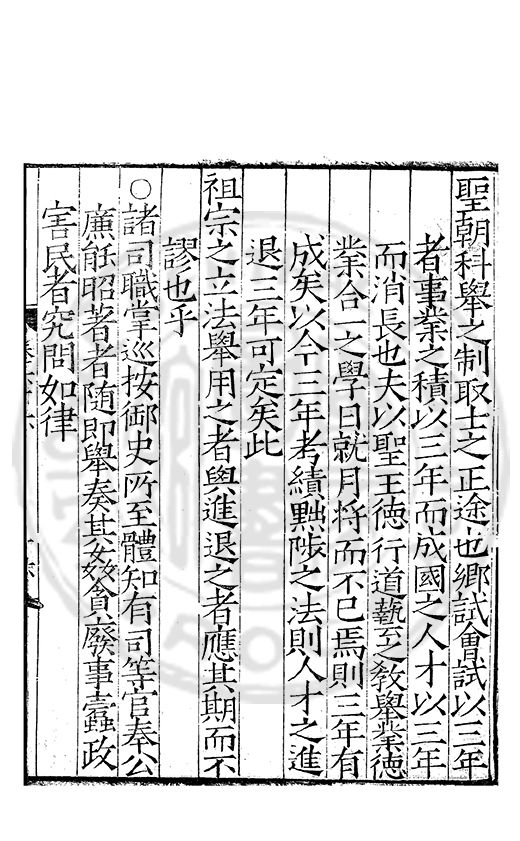 聖朝科舉之制取士之正途也鄉試會試以三年
者事業之積以三年而成國之人才以三年
而消長也夫以聖王德行道藝之教舉業德
業合一之學日就月將而不已焉則三年有
成矣以今三年考績黜陟之法則人才之進
退三年可定矣此
祖宗之立法舉用之者與進退之者應其期而不
謬也乎
○諸司職掌巡按御史所至體知有司等官奉公
廉能昭著者隨即舉奏其姦貪廢事蠹政
害民者究問如律